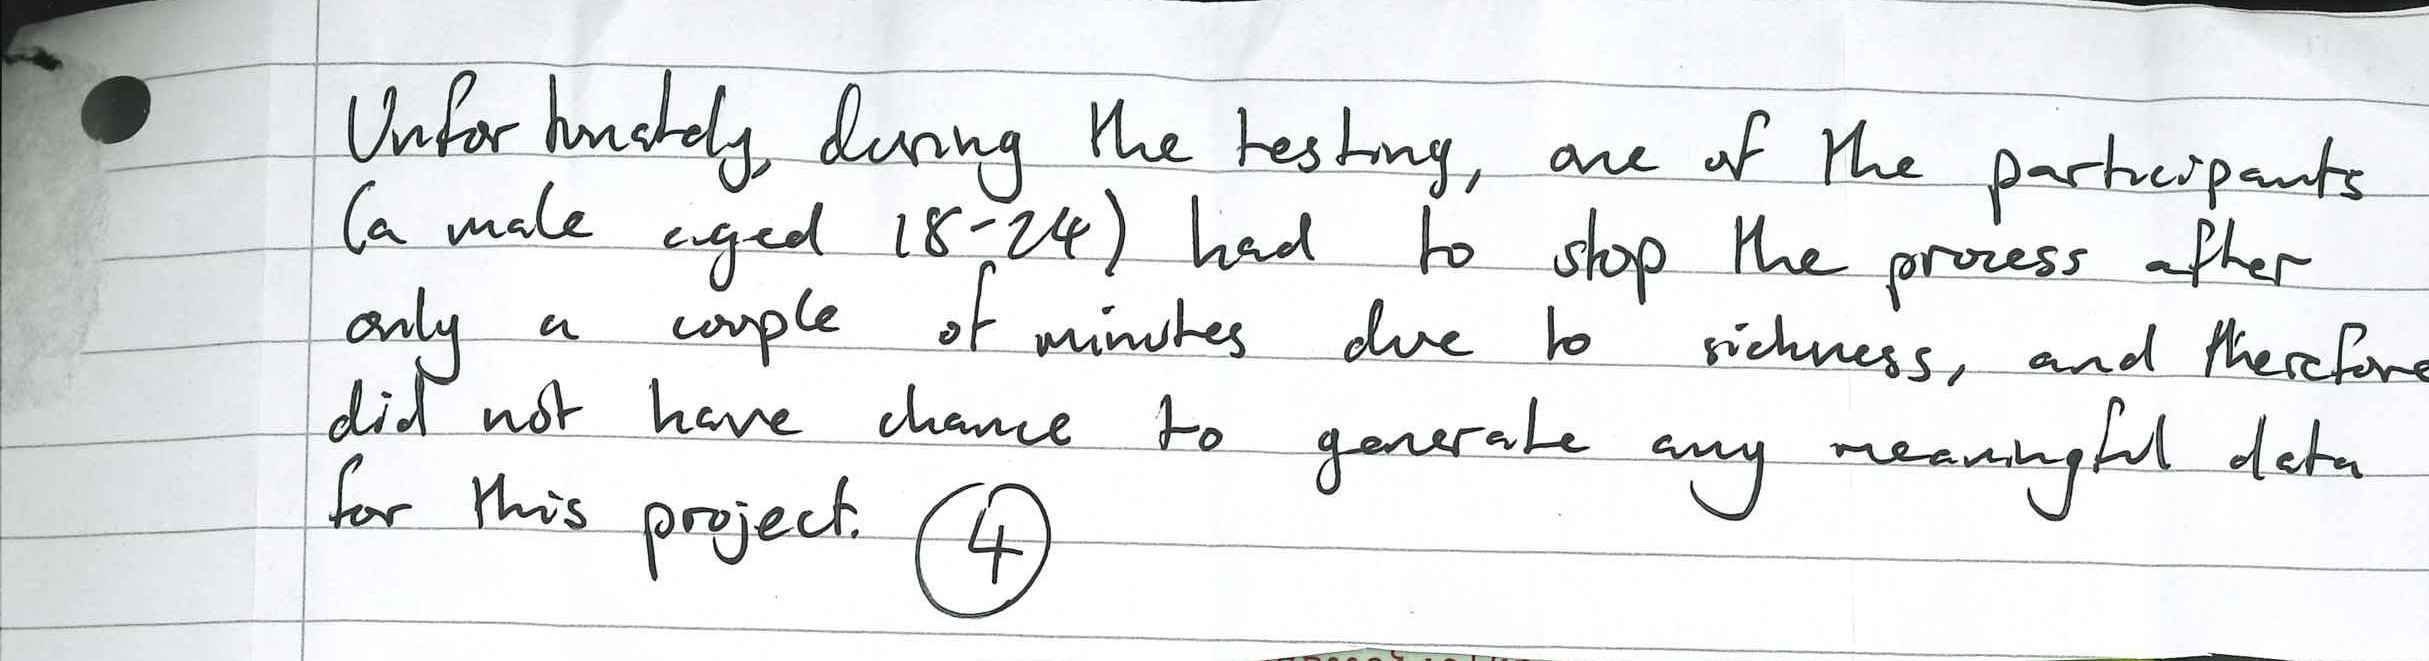 Unfortunately, during the testing, one of the participants
(a male aged 18-24) had to stop the process after
only a couple of minutes due to sickness, and therefore
did not have chance to generate any meaningful data
for this project. 4